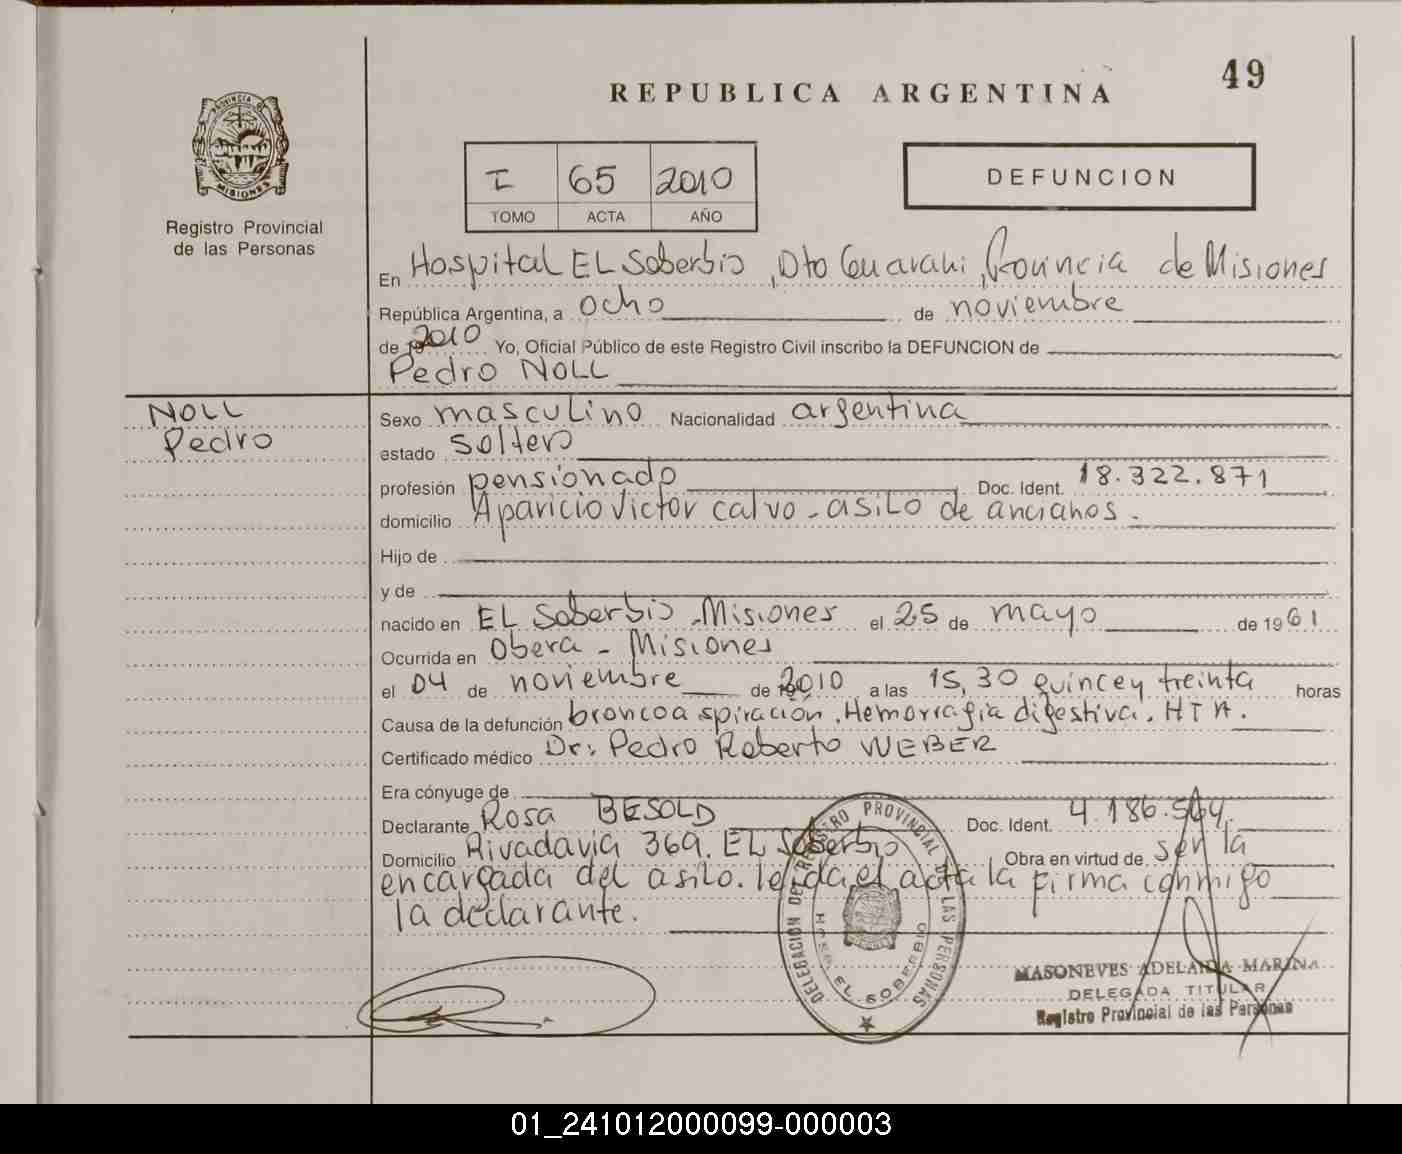 49
REPUBLICA ARGENTINA
PROVINCIA DE
MISIONES
Registro Provincial
de las Personas
I 65 2010
TOMO ACTA AÑO
DEFUNCION
En Hospital EL Soberbio, Dto Guarani, Provincia de Misiones
República Argentina, a ocho de noviembre
de 2010 Yo, Oficial Público de este Registro Civil inscribo la DEFUNCION de
Pedro NOLL
NOLL
Pedro
Sexo masculino Nacionalidad argentina
estado soltero
profesión pensionado Doc. Ident. 18.322.871
domicilio Aparicio Victor calvo - asilo de ancianos.
Hijo de
y de
nacido en EL Soberbio - Misiones el 25 de mayo de 1961
Ocurrida en Obera - Misiones
el 04 de noviembre de 2010 a las 15,30 quince y treinta horas
Causa de la defunción broncoaspiración. Hemorragia digestiva. HTA.
Certificado médico Dr. Pedro Roberto WEBER
Era cónyuge de
Declarante Rosa BESOLD Doc. Ident. 4.186.564.
Domicilio Rivadavia 369. EL Soberbio Obra en virtud de ser la
encargada del asilo. leida el acta la firma conmigo
la declarante.
DELEGACION DEL REGISTRO PROVINCIAL DE LAS PERSONAS
HOSP. EL SOBERBIO
MASONEVES ADELAIDA MARINA
DELEGADA TITULAR
Registro Provincial de las Personas
01_241012000099-000003